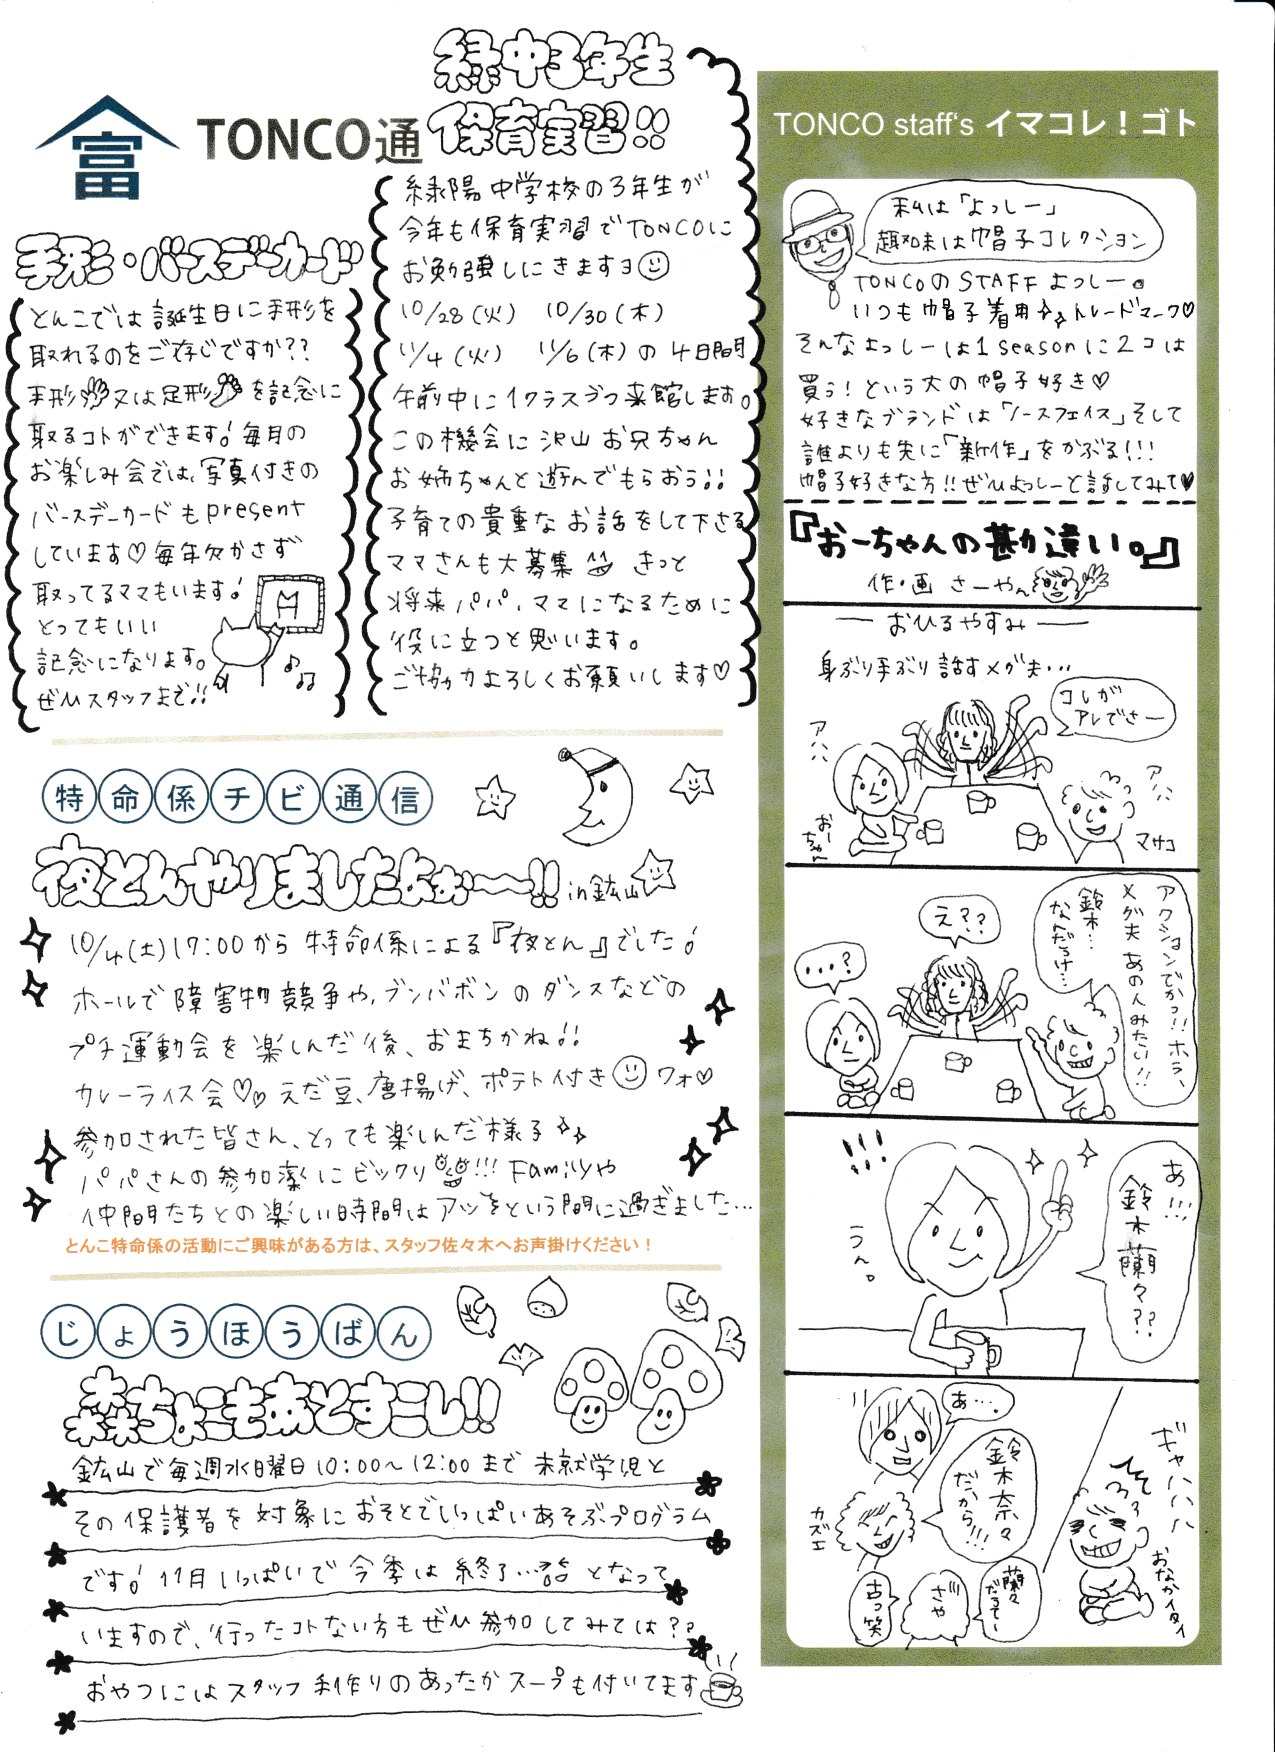 富
TONCO通
手形・バースデーカード
とんこでは誕生日に手形を
取れるのをご存じですか??
手形又は足形を記念に
取るコトができます!毎月の
お楽しみ会では、写真付きの
バースデーカードもpresent
しています♡毎年欠かさず
取ってるママもいます!
とってもいい
記念になります。
ぜひスタッフまで!!
緑中3年生
保育実習!!
緑陽中学校の3年生が
今年も保育実習でTONCOに
お勉強しにきますヨ
10/28(火) 10/30(木)
11/4(火) 11/6(木)の4日間
午前中に1クラスづつ来館します。
この機会に沢山お兄ちゃん
お姉ちゃんと遊んでもらおう!!
子育ての貴重なお話をして下さる
ママさんも大募集 きっと
将来パパ、ママになるために
役に立つと思います。
ご協力よろしくお願いします♡
特命係チビ通信
夜とんやりましたよぉ〜!! in鉱山
10/4(土)17:00から特命係による『夜とん』でした!
ホールで障害物競争や、ブンバボンのダンスなどの
プチ運動会を楽しんだ後、おまちかね!!
カレーライス会♡♡えだ豆、唐揚げ、ポテト付き ワォ♡
参加された皆さん、とっても楽しんだ様子
パパさんの参加率にビックリ!!! Familyや
仲間たちとの楽しい時間はアッをという間に過ぎました…
とんこ特命係の活動にご興味がある方は、スタッフ佐々木へお声掛けください!
じょうほうばん
森ちょこもあとすこし!!
鉱山で毎週水曜日10:00〜12:00まで未就学児と
その保護者を対象におそとでいっぱいあそぶプログラム
です!11月いっぱいで今季は終了… となって
いますので、行ったコトない方もぜひ参加してみては??
おやつにはスタッフ手作りのあったかスープも付いてます
TONCO staff's イマコレ!ゴト
私は「よっしー」
趣味は帽子コレクション
TONCOのSTAFFよっしー。
いつも帽子着用 トレードマーク♡
そんなよっしーは1seasonに2コは
買う!という大の帽子好き♡
好きなブランドは「ノースフェイス」そして
誰よりも先に「新作」をかぶる!!!
帽子好きな方!!ぜひよっしーと話してみて♥
『おーちゃんの勘違い。』
作・画 さーやん
ーおひるやすみー
身ぶり手ぶり話すメグ夫…
コレが
アレでさー
アハハ
おーちゃん
アハハ
マサコ
アクションでかっ!!ホラ、
メグ夫あの人みたい!!
鈴木…
なんだっけ…
え??
…?
あ!!!
鈴木蘭々??
!!!
うん。
あ…。
鈴木奈々
だから!!!
カズエ
蘭々
だって〜
ざや
古っ笑
ギャハハハハ
おなかイタイ